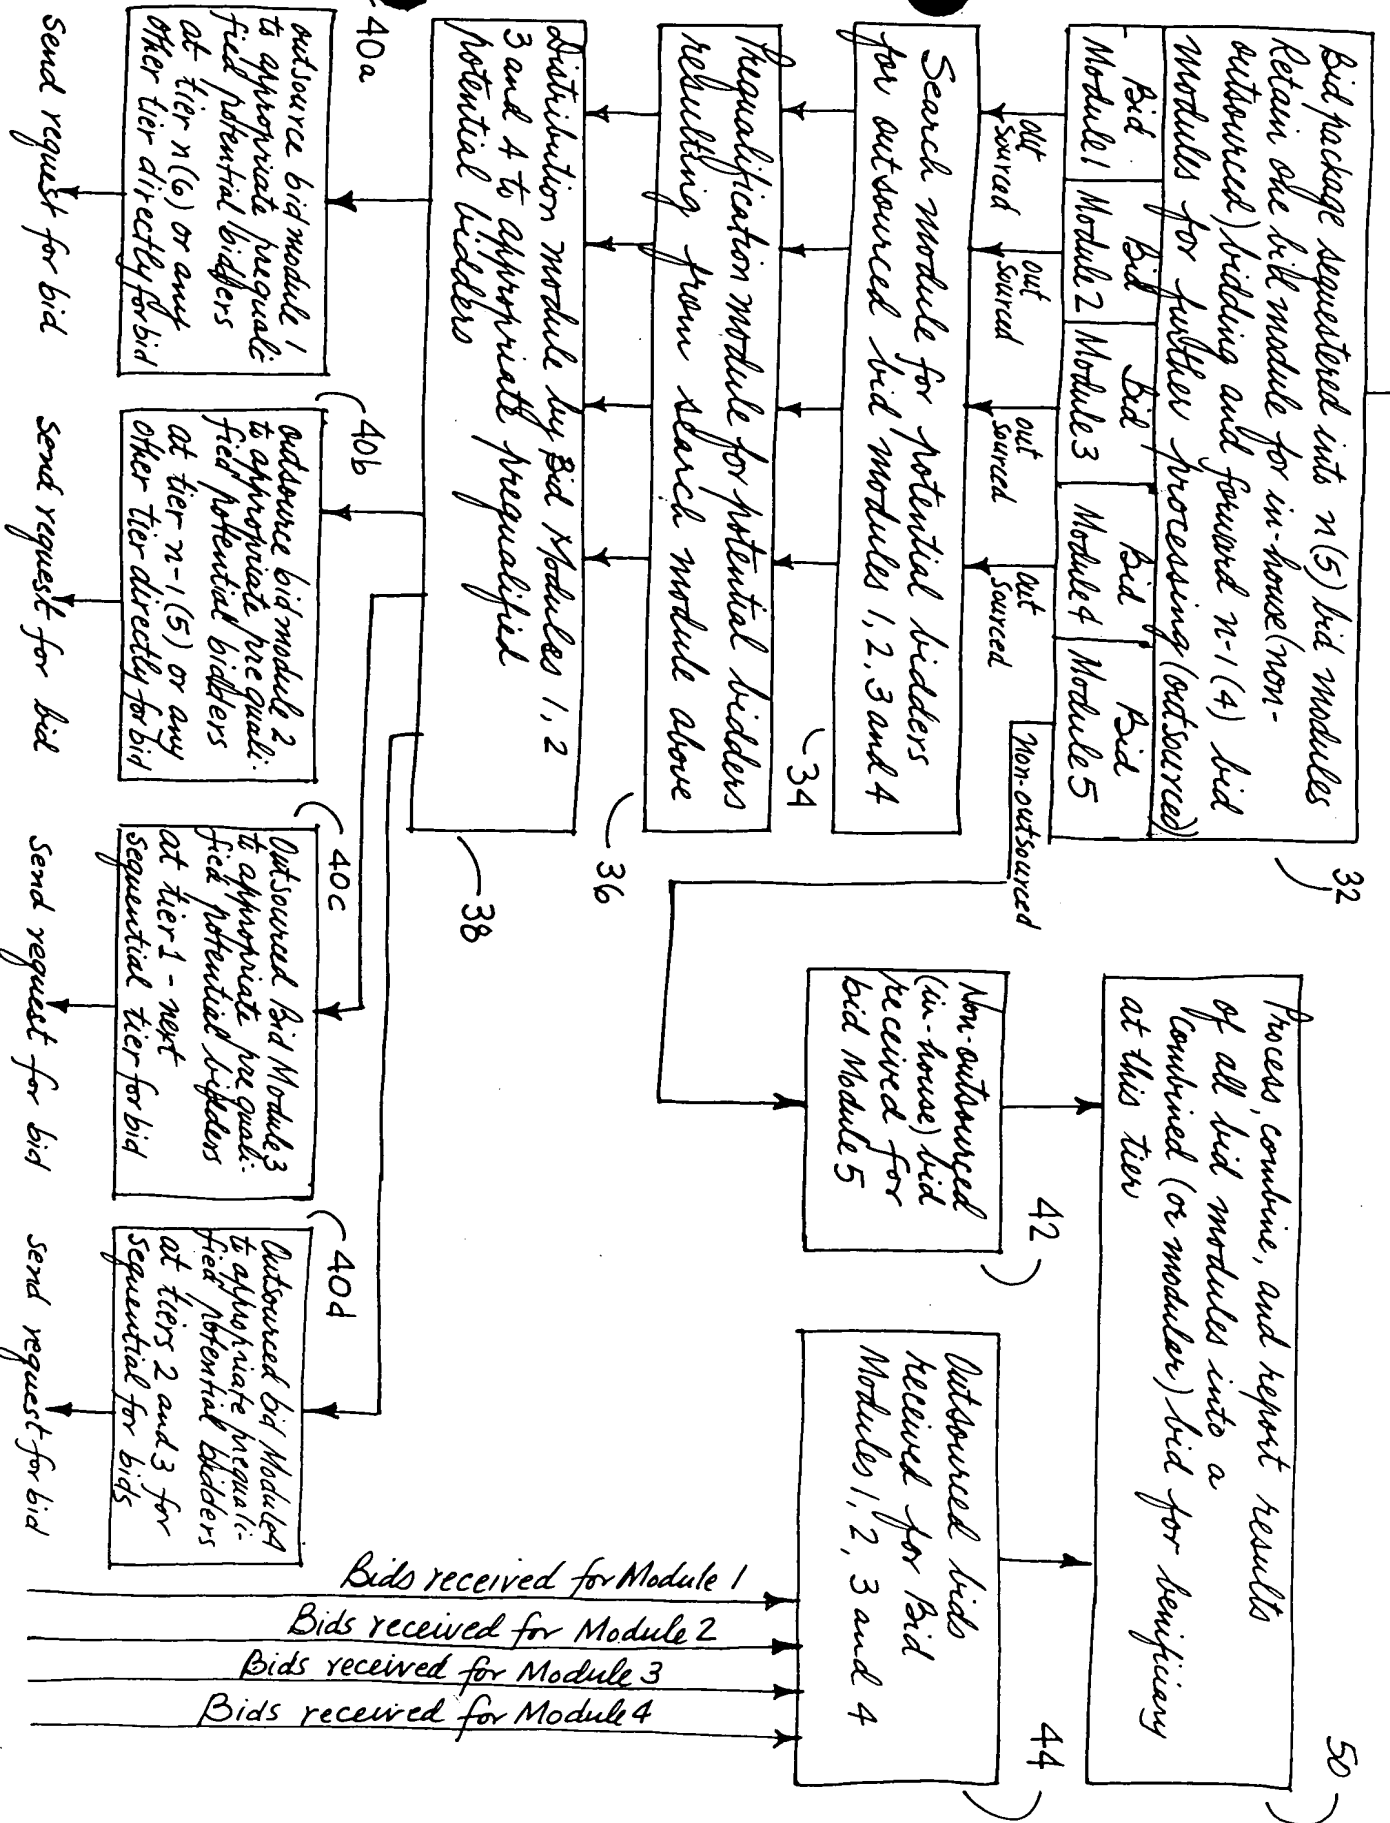 Bid package sequestered into n(5) bid modules
Retain one bid module for in-house (non-
outsourced) bidding and forward n-1(4) bid
modules for further processing (outsourced)
32
Bid
Module 1
Bid
Module 2
Bid
Module 3
Bid
Module 4
Bid
Module 5
out
sourced
out
sourced
out
sourced
out
sourced
Non-outsourced
Search module for potential bidders
for outsourced bid modules 1, 2, 3 and 4
34
Prequalification module for potential bidders
resulting from search module above
36
Distribution module by Bid Modules 1, 2
3 and 4 to appropriate prequalified
potential bidders
38
40a
outsource bid module 1
to appropriate prequali
fied potential bidders
at tier n(6) or any
other tier directly for bid
Send request for bid
40b
outsource bid module 2
to appropriate prequali-
fied potential bidders
at tier n-1(5) or any
other tier directly for bid
Send request for bid
40c
Outsourced Bid Module 3
to appropriate prequali-
fied potential bidders
at tier 1 - next
sequential tier for bid
Send request for bid
40d
Outsourced bid Module 4
to appropriate prequali-
fied potential bidders
at tiers 2 and 3 for
sequential for bids
Send request for bid
Process, combine, and report results
of all bid modules into a
combined (or modular) bid for benificiary
at this tier
50
Non-outsourced
(in-house) bid
received for
bid Module 5
42
Outsourced bids
received for Bid
Modules 1, 2, 3 and 4
44
Bids received for Module 1
Bids received for Module 2
Bids received for Module 3
Bids received for Module 4